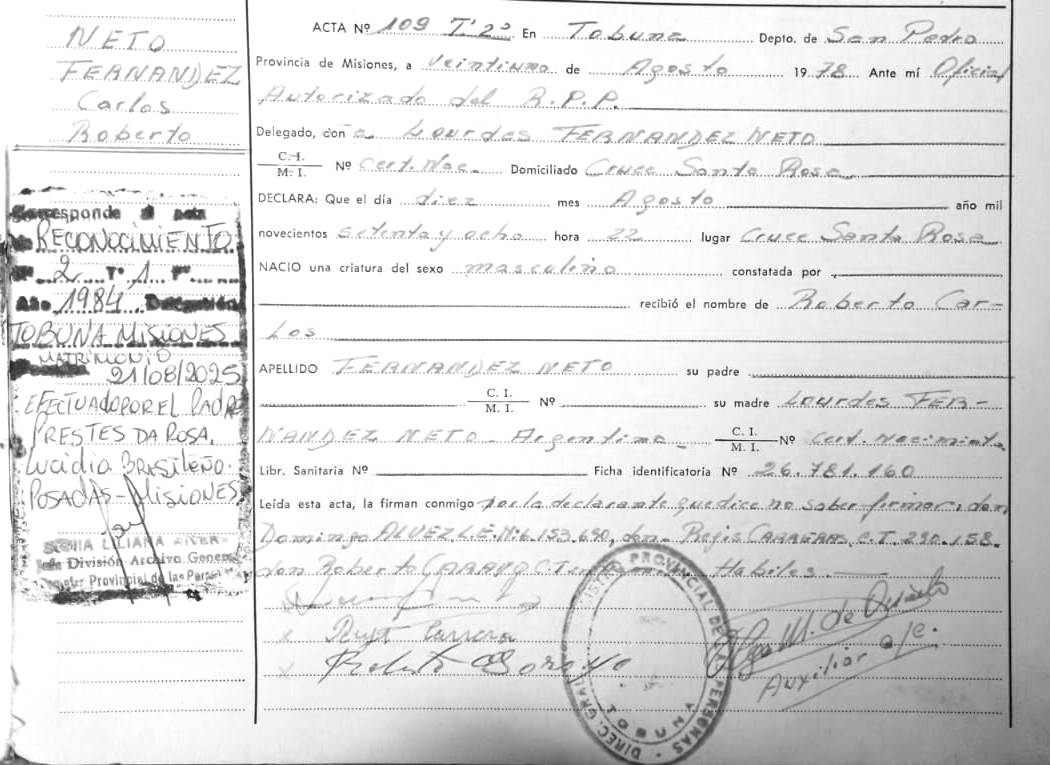 NETO
FERNANDEZ
Carlos
Roberto
Corresponde al acta
RECONOCIMIENTO
Nº 2 Tº 1 Fº
Año 1984 Delegación
TOBUNA MISIONES
MATRIMONIO
21/08/2025
EFECTUADO POR EL PADRE
PRESTES DA ROSA,
Lucidio BRASILEÑO.
POSADAS-Misiones
División Archivo General
Provincial de las Personas
ACTA Nº 109 Tº 2º En Tobuna Depto. de San Pedro
Provincia de Misiones, a Veintiuno de Agosto 1978 Ante mí Oficial
Autorizado del R.P.P.
Delegado, don a Lourdes FERNANDEZ NETO
C.I. M.I. Nº Cert. Nac. Domiciliado Cruce Santa Rosa
DECLARA: Que el día diez mes Agosto año mil
novecientos setenta y ocho hora 22 lugar Cruce Santa Rosa
NACIO una criatura del sexo masculino constatada por
recibió el nombre de Roberto Car-
Los
APELLIDO FERNANDEZ NETO su padre
C. I. M. I. Nº su madre Lourdes FER-
NANDEZ NETO - Argentina - C. I. M. I. Nº Cert. Nacimiento
Libr. Sanitaria Nº Ficha identificatoria Nº 26.781.160
Leída esta acta, la firman conmigo por la declarante que dice no saber firmar, don
Domingo ALVEZ L.E. Nº 6.153.690, don Regis CARRERAS, C.I. 290.158.
don Roberto Habiles.
Auxiliar a/c.
REGISTRO PROVINCIAL DE PERSONAS - DIREC. GRAL.
TOBUNA